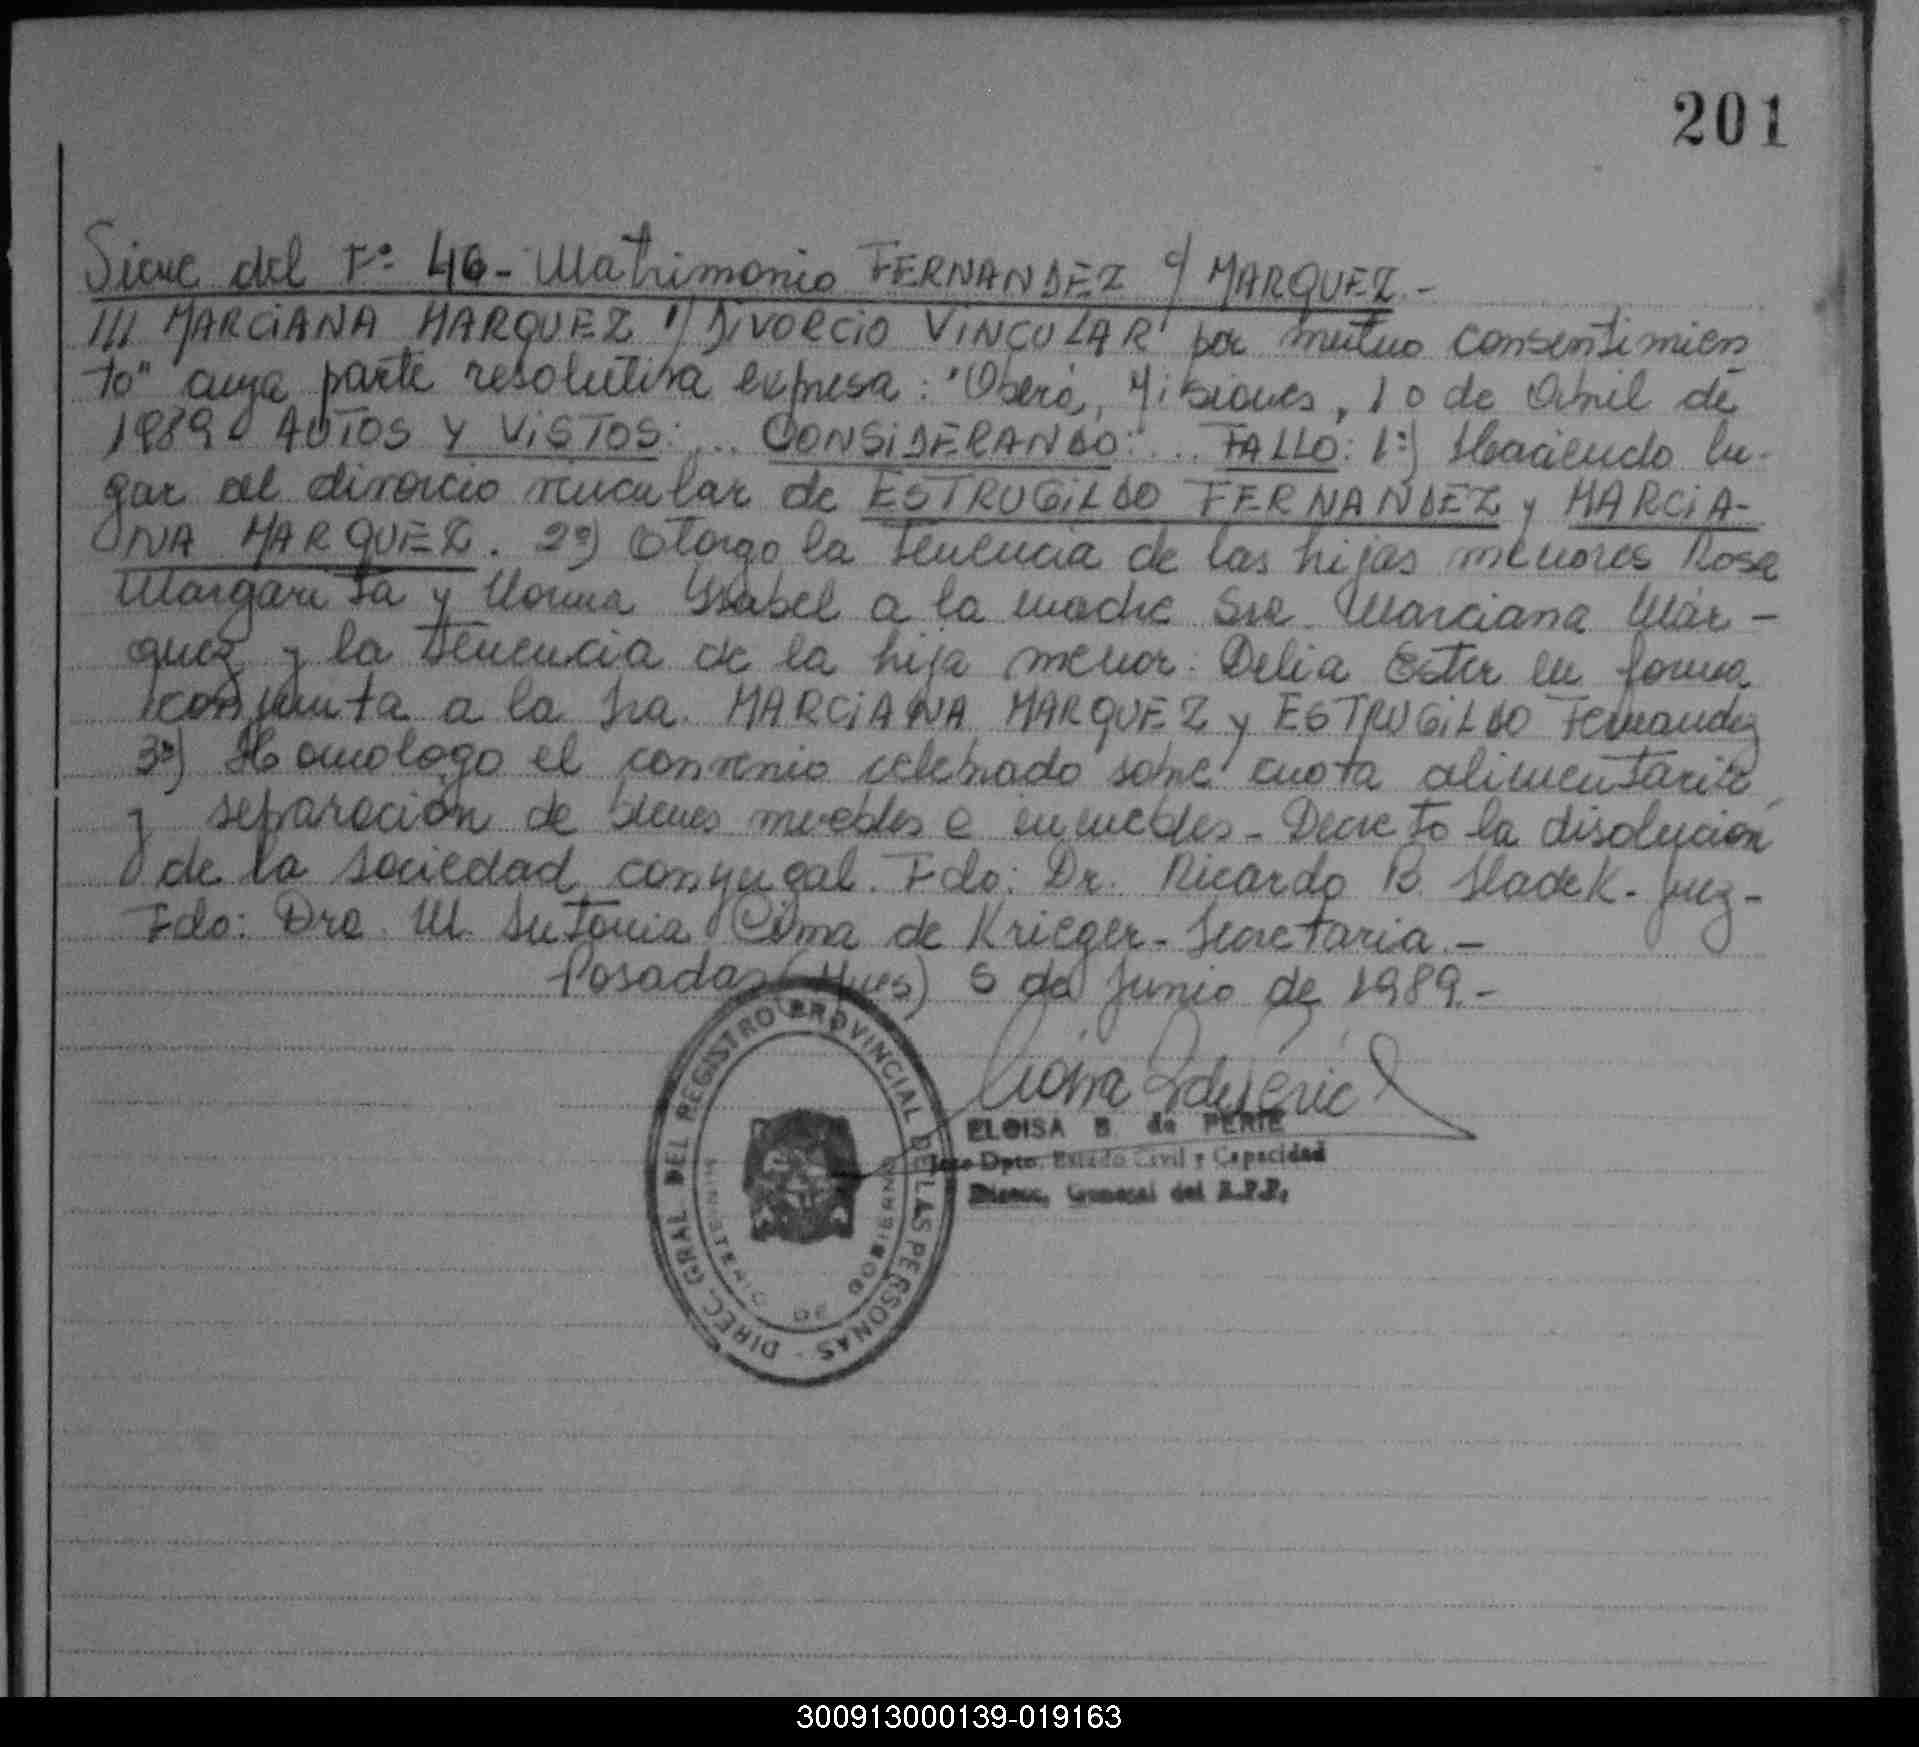 201
Sigue del Fº 46 - Matrimonio FERNANDEZ c/ MARQUEZ.-
/// MARCIANA MARQUEZ s/ DIVORCIO VINCULAR por mutuo consentimien
to" cuya parte resolutiva expresa: "Oberá, Misiones, 10 de Abril de
1989. AUTOS Y VISTOS: ... CONSIDERANDO: ... FALLO: 1º) Haciendo lu-
gar al divorcio vincular de ESTRUGILDO FERNANDEZ y MARCIA-
NA MARQUEZ. 2º) Otorgo la tenencia de las hijas menores Rosa
Margarita y Norma Ysabel a la madre Sra. Marciana Már-
quez y la tenencia de la hija menor: Delia Ester en forma
conjunta a la Sra. MARCIANA MARQUEZ y ESTRUGILDO Fernandez
3º) Homologo el convenio celebrado sobre cuota alimentaria
y separación de bienes muebles e inmuebles - Decreto la disolución
de la sociedad conyugal. Fdo: Dr. Ricardo B. Sladek - Juez -
Fdo: Dra. M. Antonia Cima de Krieger - Secretaria. -
Posadas (Mnes) 5 de Junio de 1989.-
ELOISA B. de PERIE
Jefe Dpto. Estado Civil y Capacidad
Direcc. General del R.P.P.
DIREC. GRAL DEL REGISTRO PROVINCIAL DE LAS PERSONAS -
MINISTERIO DE GOBIERNO
300913000139-019163